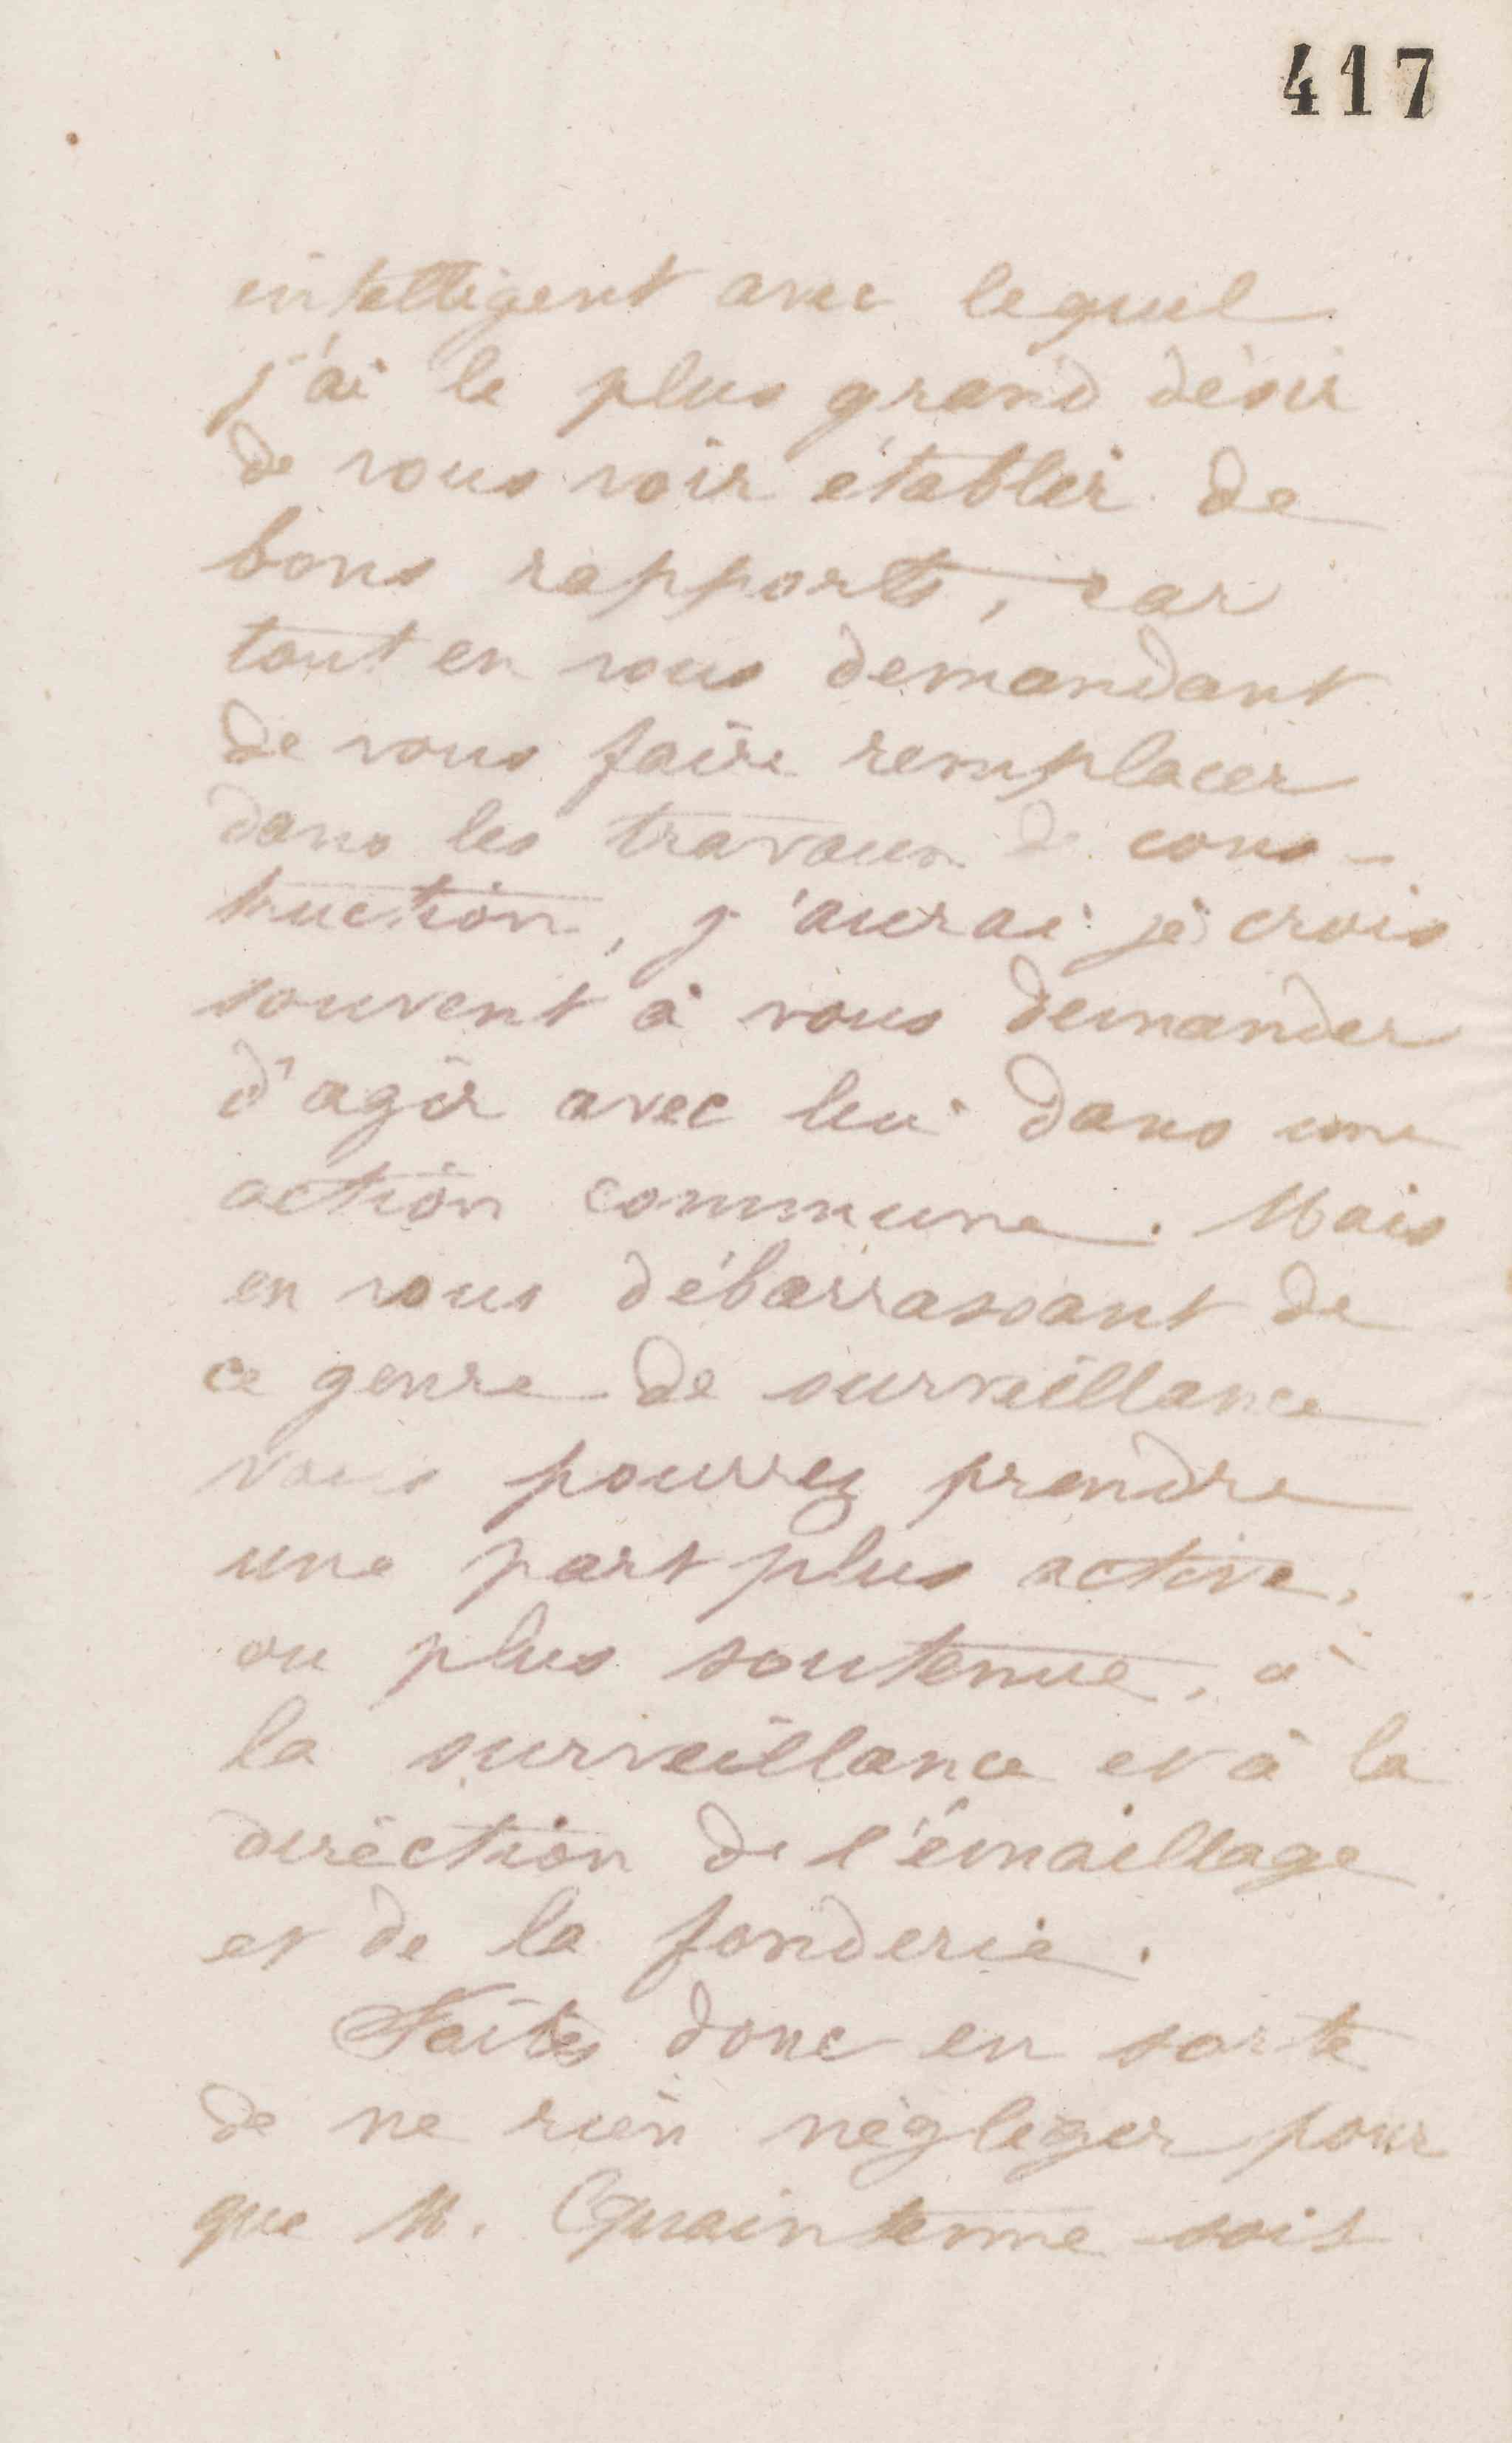 417
intelligent avec lequel
j'ai le plus grand désir
de vous voir établir de
bons rapports, car
tout en vous demandant
de vous faire remplacer
dans les travaux de cons-
truction, j'aurai je crois
souvent à vous demander
d'agir avec lui dans une
action commune. Mais
en vous débarrassant de
ce genre de surveillance
vous pourrez prendre
une part plus active,
ou plus soutenue, à
la surveillance et à la
direction de l'émaillage
et de la fonderie.
Faites donc en sorte
de ne rien négliger pour
que M. Quaintenne soit